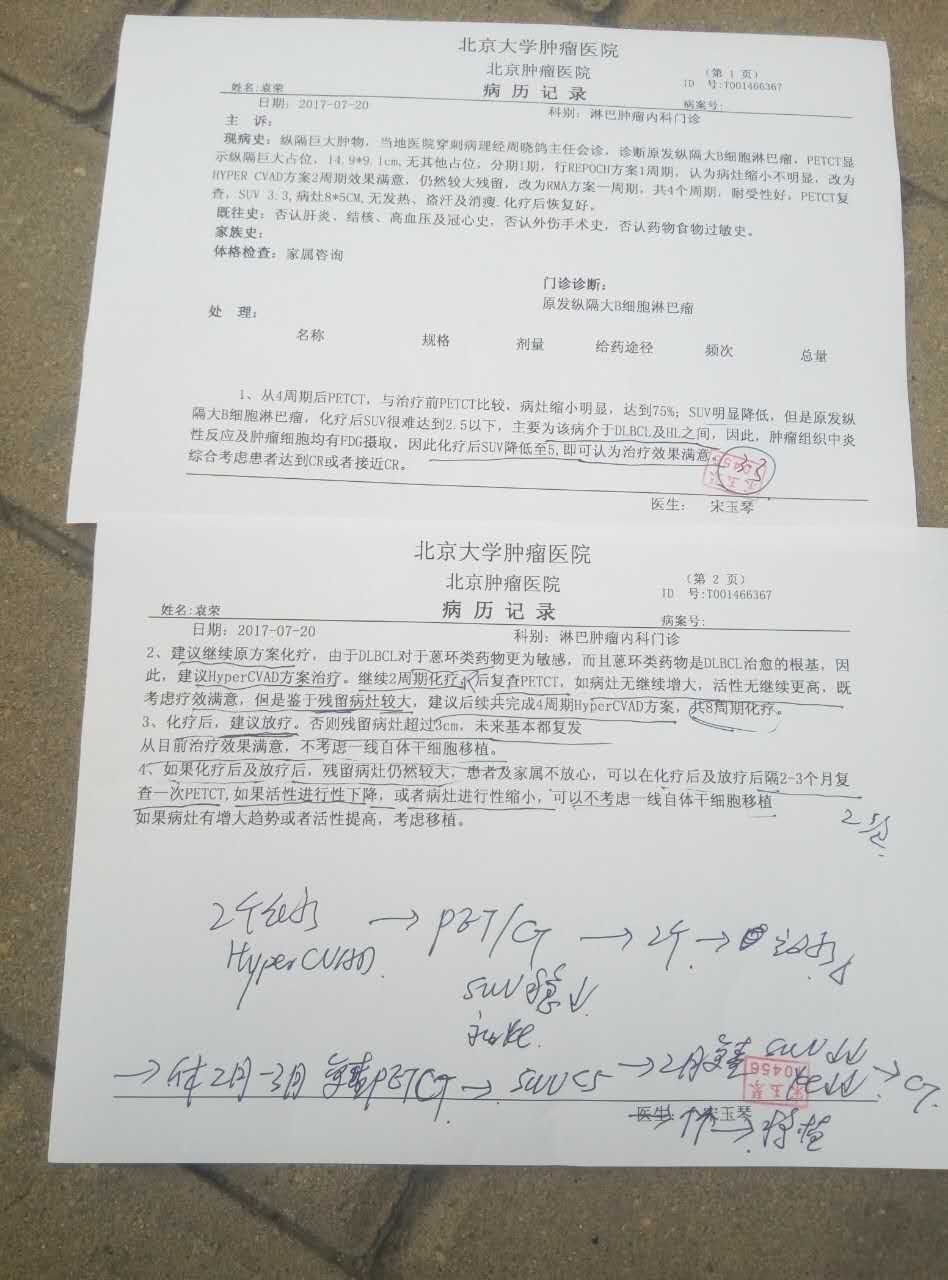 北京大学肿瘤医院
北京肿瘤医院
（第 1 页）
姓名:袁荣
病 历 记 录
ID 号:T001466367
日期: 2017-07-20
科别: 淋巴肿瘤内科门诊
病案号:
主 诉:
现病史: 纵隔巨大肿物, 当地医院穿刺病理经周晓鸽主任会诊, 诊断原发纵隔大B细胞淋巴瘤, PETCT显
示纵隔巨大占位, 14.9*9.1cm,无其他占位, 分期I期, 行REPOCH方案1周期, 认为病灶缩小不明显, 改为
HYPER CVAD方案2周期效果满意, 仍然较大残留, 改为RMA方案一周期, 共4个周期, 耐受性好, PETCT复
查, SUV 3.3,病灶8*5CM,无发热、盗汗及消瘦.化疗后恢复好。
既往史: 否认肝炎、结核、高血压及冠心史, 否认外伤手术史, 否认药物食物过敏史。
家族史:
体格检查: 家属咨询
门诊诊断:
原发纵隔大B细胞淋巴瘤
处 理:
名称 规格 剂量 给药途径 频次 总量
1、从4周期后PETCT, 与治疗前PETCT比较, 病灶缩小明显, 达到75%; SUV明显降低, 但是原发纵
隔大B细胞淋巴瘤, 化疗后SUV很难达到2.5以下, 主要为该病介于DLBCL及HL之间, 因此, 肿瘤组织中炎
性反应及肿瘤细胞均有FDG摄取, 因此化疗后SUV降低至5,即可认为治疗效果满意。
3.3
综合考虑患者达到CR或者接近CR。
医生: 宋玉琴
北京大学肿瘤医院
北京肿瘤医院
（第 2 页）
姓名:袁荣
病 历 记 录
ID 号:T001466367
日期: 2017-07-20
科别: 淋巴肿瘤内科门诊
病案号:
2、建议继续原方案化疗, 由于DLBCL对于蒽环类药物更为敏感, 而且蒽环类药物是DLBCL治愈的根基, 因
此, 建议HyperCVAD方案治疗。继续2周期化疗 后复查PETCT, 如病灶无继续增大, 活性无继续更高, 既
考虑疗效满意, 但是鉴于残留病灶较大, 建议后续共完成4周期HyperCVAD方案, 共8周期化疗。
3、化疗后, 建议放疗。否则残留病灶超过3cm, 未来基本都复发
从目前治疗效果满意, 不考虑一线自体干细胞移植。
4、如果化疗后及放疗后, 残留病灶仍然较大, 患者及家属不放心, 可以在化疗后及放疗后隔2-3个月复
查一次PETCT,如果活性进行性下降, 或者病灶进行性缩小, 可以不考虑一线自体干细胞移植
如果病灶有增大趋势或者活性提高, 考虑移植。
2个
HyperCVAD
→ PET/CT → 2个 →
SUV稳↓
→ 休2月-3月 复查PETCT → SUV<5 → 2月复查 SUV↓↓ → CT
宋玉琴
00456
医生: 宋玉琴
个 → 移植